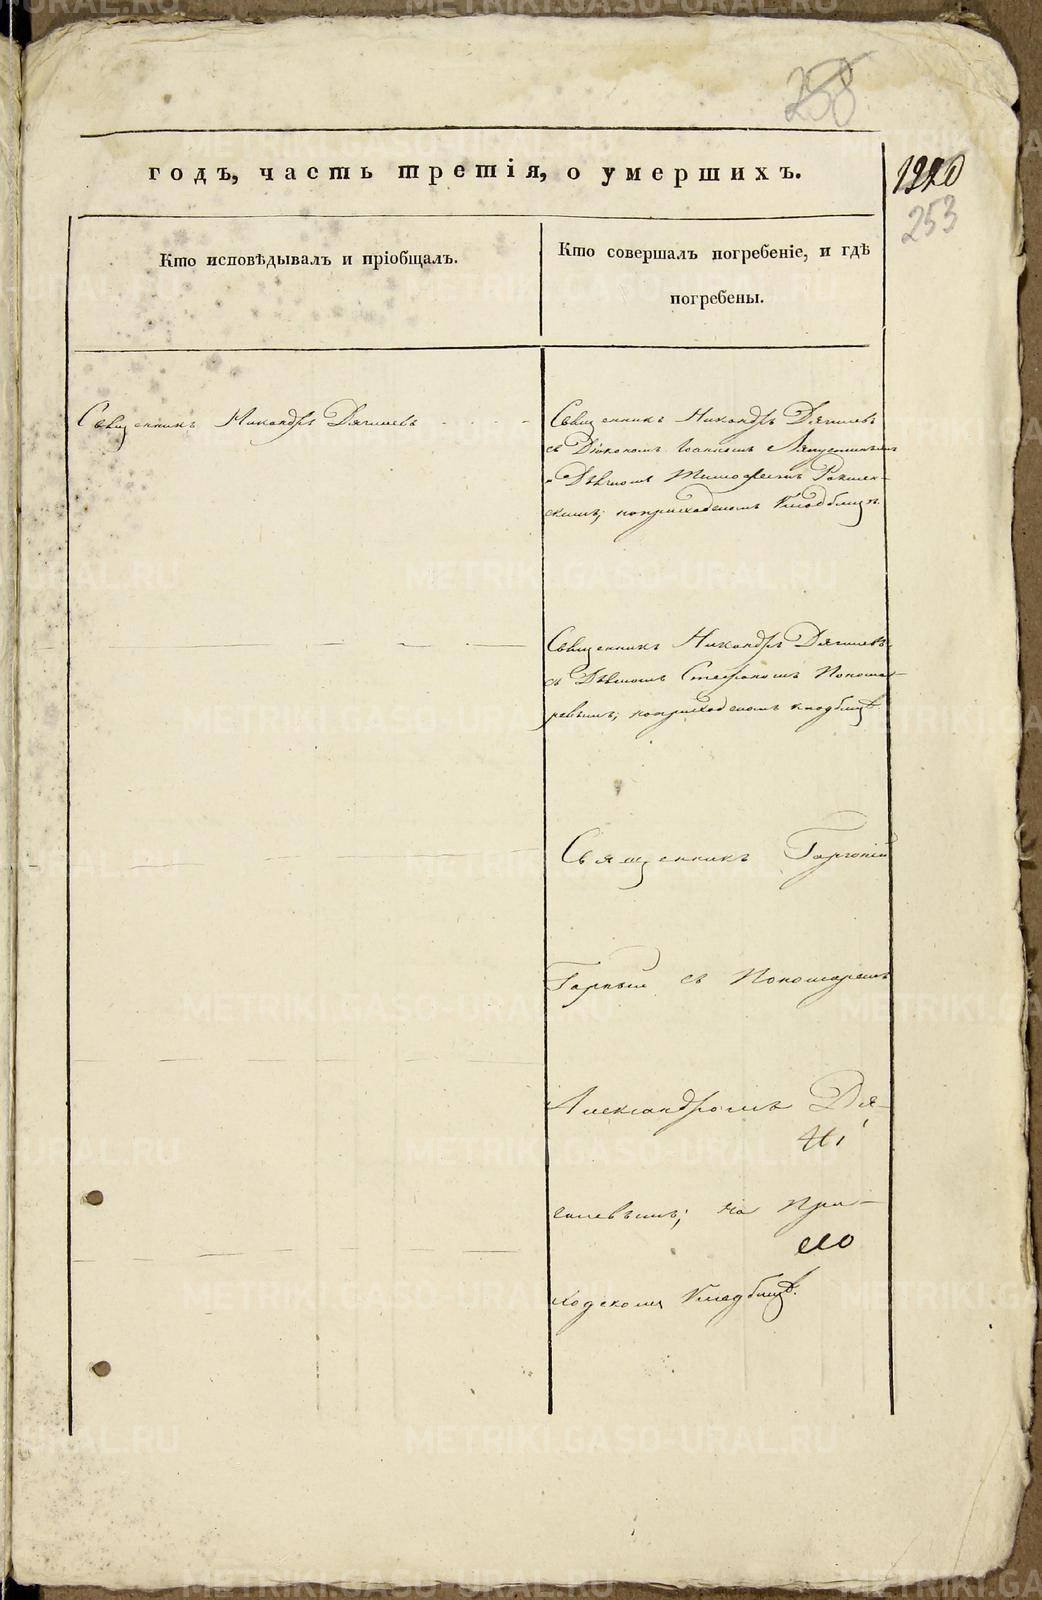 258
годъ, часть третія, о умершихъ.
253
Кто исповѣдывалъ и пріобщалъ.
Кто совершалъ погребеніе, и гдѣ
погребены.
Священникъ Никандръ Дягилевъ
Священникъ Никандръ Дягилевъ
съ Діакономъ Іоанномъ Ляпустинымъ
и Дьячкомъ Тимофеемъ
скимъ; на приходскомъ кладбищѣ.
Священникъ Никандръ Дягилевъ
съ Дьячкомъ Стефаномъ Понома-
ревымъ; на приходскомъ кладбищѣ.
Священникъ Горгоній
Горныхъ съ Пономаремъ
Александромъ Дя-
гилевымъ; на При-
ходскомъ Кладбищѣ.
METRIKI.GASO-URAL.RU